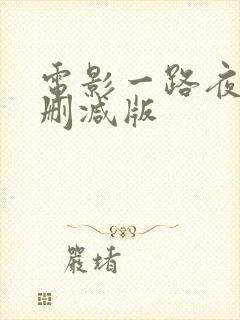 電影一路夜
删减版
嚴堵